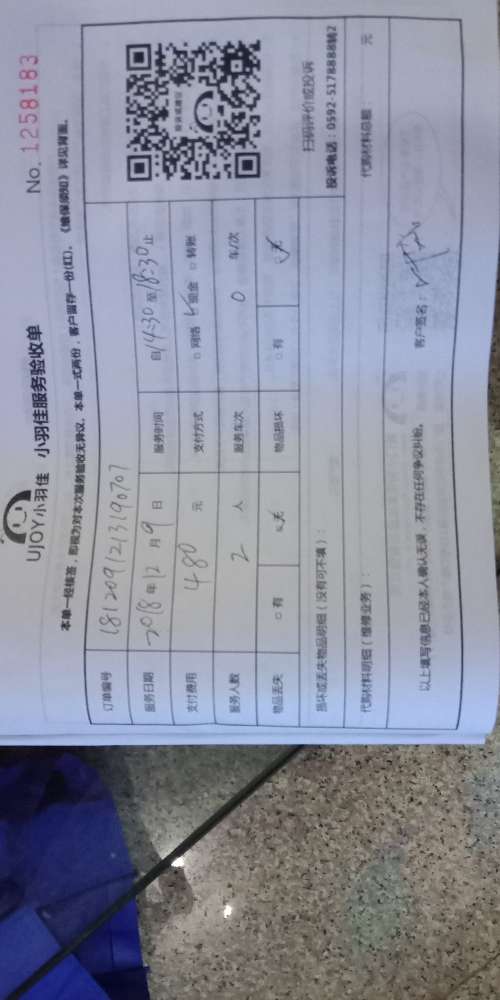 UJOY小羽佳 小羽佳服务验收单
No. 1258183
本单一经接签，即视为对本次服务验收无异议。本单一式两份，客户留存一份(红)。《维保须知》详见背面。
订单编号 181209121319070
服务日期 2018年12月9日 服务时间 自14:30至18:30止
支付费用 480 元 支付方式 □网络 ☑现金 □转账
服务人数 2 人 服务车次 0 车/次
物品丢失 □有 ☑无 物品损坏 □有 ☑无
损坏或丢失物品明细（没有可不填）：
扫码评价或投诉
投诉电话：0592-5178888转2
代购材料明细（维修业务）： 代购材料总额： 元
以上填写信息已经本人确认无误，不存在任何争议纠纷。 客户签名：